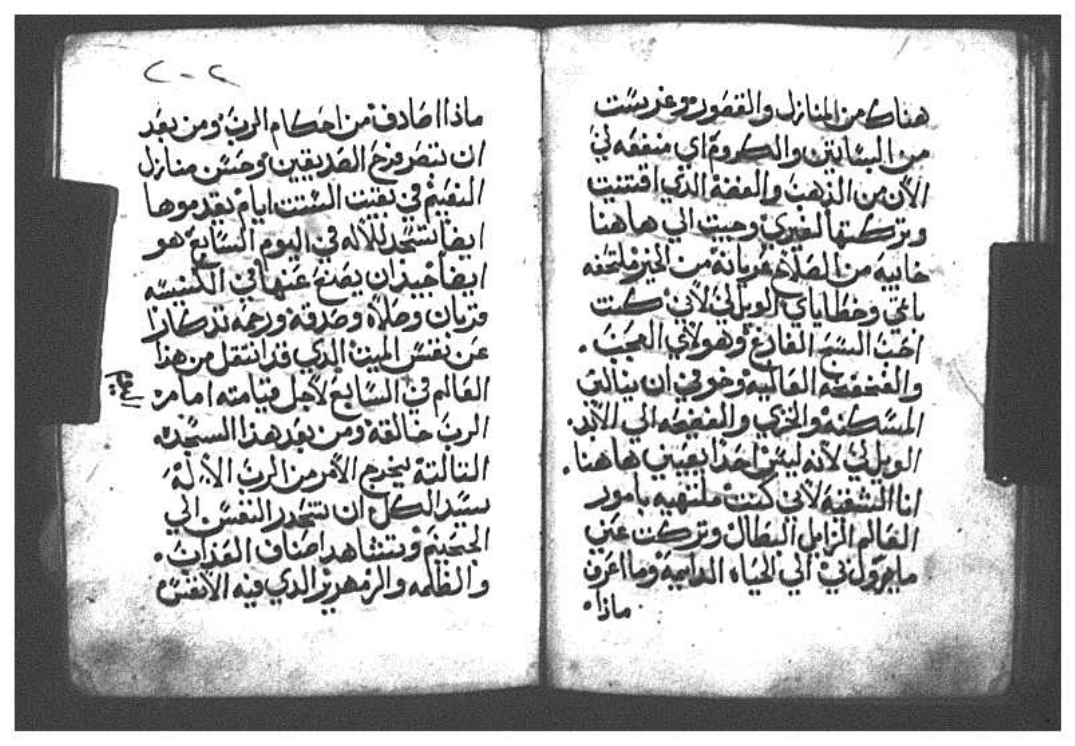 هناك من المنازل والقصور وغرست
من البساتين والكروم اي منفعه لي
الان من الذهب والفضة الذي اقتنيت
وتركتها لغيري وجيت الي هاهنا
خايبه من الصلاح عريانة من الخير ملتحفه
باثمي وخطاياي الويل لي لاني كنت
احب السبح الفارغ وهولاي العجب
والعظمه العاليه وخوفي ان ينالني
المسكنه والخزي والفضيحه الي الابد
الويل لي لانه ليس احدا يعينني هاهنا
انا الشقيه لاني كنت ملتهيه بامور
العالم الزايل البطال وتركت عني
ما يوول بي الي الحياه الدايمة وما اعرف
ماذا
٢٠٢
ماذا اصادف من احكام الرب ومن بعد
ان تبصر فرح الصديقين وحسن منازل
النعيم في بقيت الستت ايام يقدموها
ايضا تسجد للاله في اليوم السابع هو
ايضا حينذ ان يصنع عنها في الكنيسه
قربان وصلاة وصدقة ورحمه تذكارا
عن نفس الميت الذي قد انتقل من هذا
العالم في السابع لاجل قيامته امام
الرب خالقة ومن بعد هذا السجده
التالتة يخرج الامر من الرب الاله
سيد الكل ان تنحدر النفس الي
الجحيم وتشاهد اصناف العذاب
والظلمه والزمهرير الذي فيه الانفس